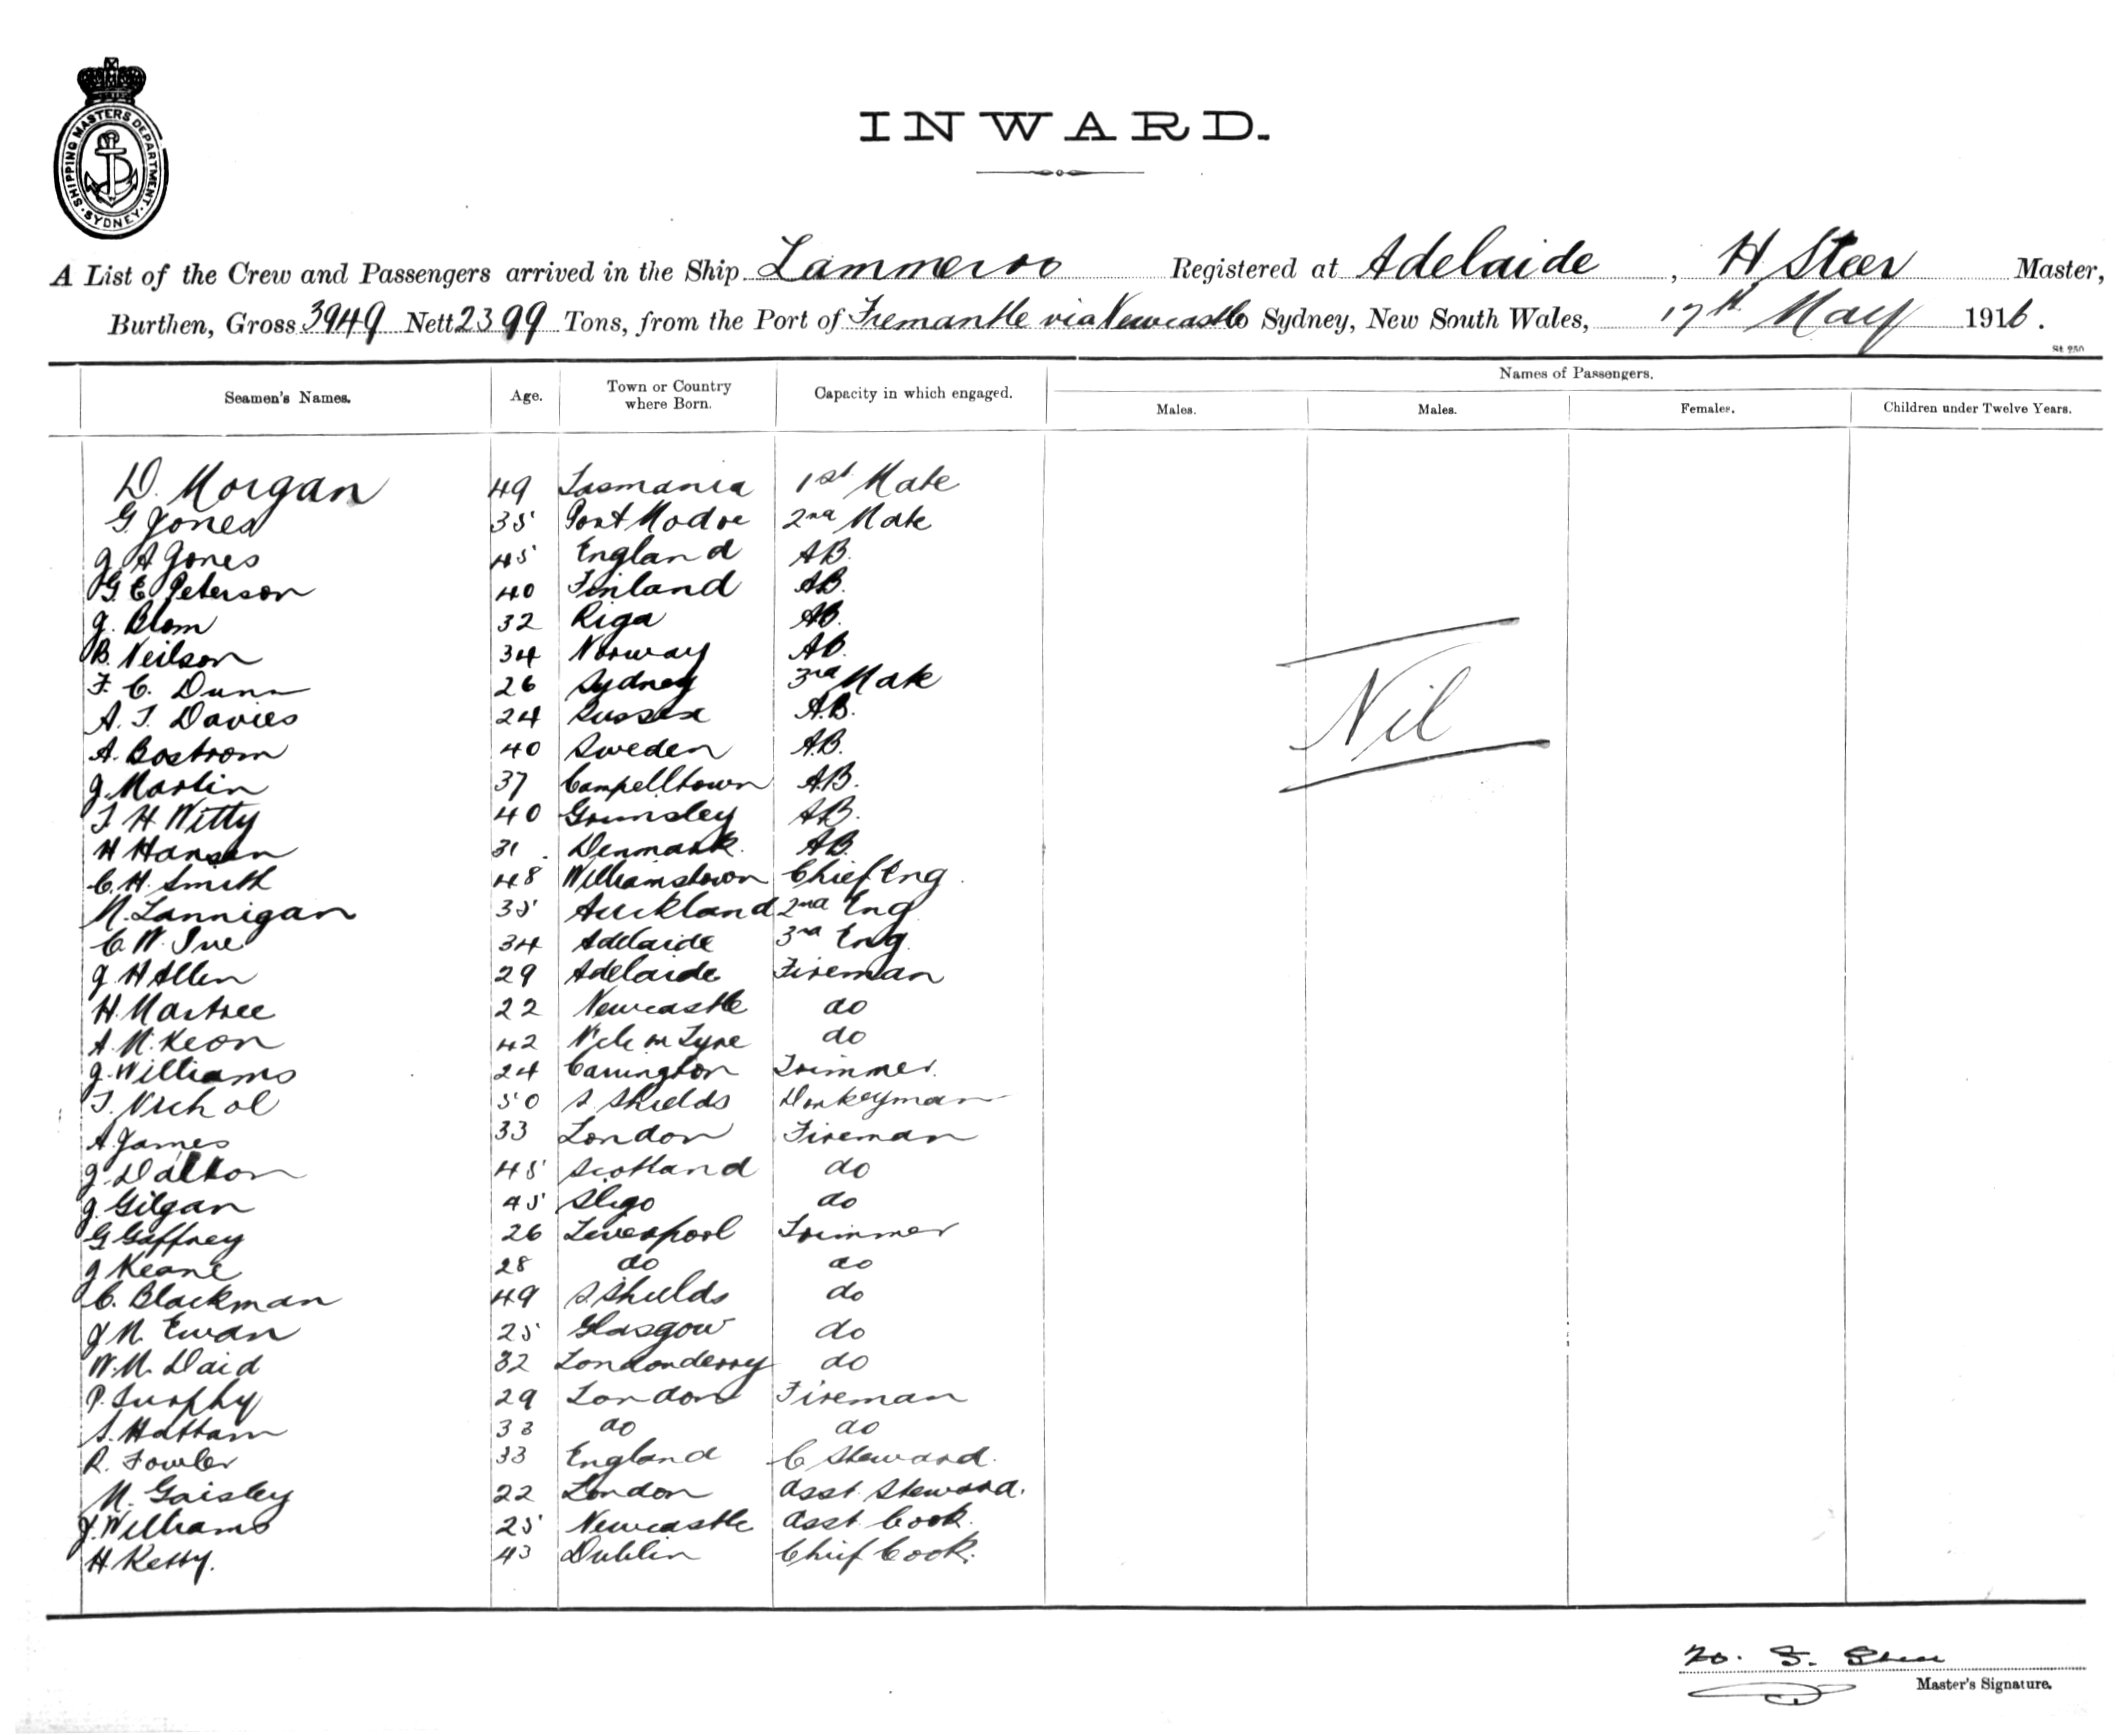 SHIPPING MASTERS DEPARTMENT. SYDNEY.
INWARD.
A List of the Crew and Passengers arrived in the Ship Lammeroo Registered at Adelaide, H Steer Master,
Burthen, Gross 3949 Nett 2399 Tons, from the Port of Fremantle via Newcastle Sydney, New South Wales, 17th May 1916.
Names of Passengers.
Seamen's Names. Age. Town or Country where Born. Capacity in which engaged. Males. Males. Females. Children under Twelve Years.
D. Morgan 49 Tasmania 1st Mate
G Jones 35 Port Madoc 2nd Mate
J A Jones 45 England AB.
G. E. Peterson 40 Finland AB.
J. Blom 32 Riga AB.
B. Neilson 34 Norway AB.
F. C. Dunn 26 Sydney 3rd Mate
A. T. Davies 24 Sussex A.B.
A. Bostrom 40 Sweden A.B.
J. Martin 37 Campelltown A.B.
T H Witty 40 Grimsley AB.
H Hansen 31 Denmark. AB.
C. H. Smith 48 Williamstown Chief Eng.
M. Lannigan 35 Auckland 2nd Eng
C. W. Ive 34 Adelaide 3rd Eng.
J H Allen 29 Adelaide Fireman
H. 22 Newcastle do
A. McKeon 42 Tyne do
J. Williams 24 Carrington Trimmer.
T. Nichol 50 S Shields Donkeyman
A. James 33 London Fireman
J. Dalton 45 Scotland do
J. Gilgan 45 Sligo do
G Gaffney 26 Liverpool Trimmer
J Keane 28 do do
C. Blackman 49 S. Shields do
J Mc Ewan 25 Glasgow do
W. Mc Daid 32 Londonderry do
P. 29 London Fireman
S. Hattam 33 do do
R. Fowler 33 England C Steward.
M. Gaisley 22 London Asst. Steward.
J. Williams 25 Newcastle Asst. Cook.
H. 43 Dublin Chief Cook.
Nil
Master's Signature.